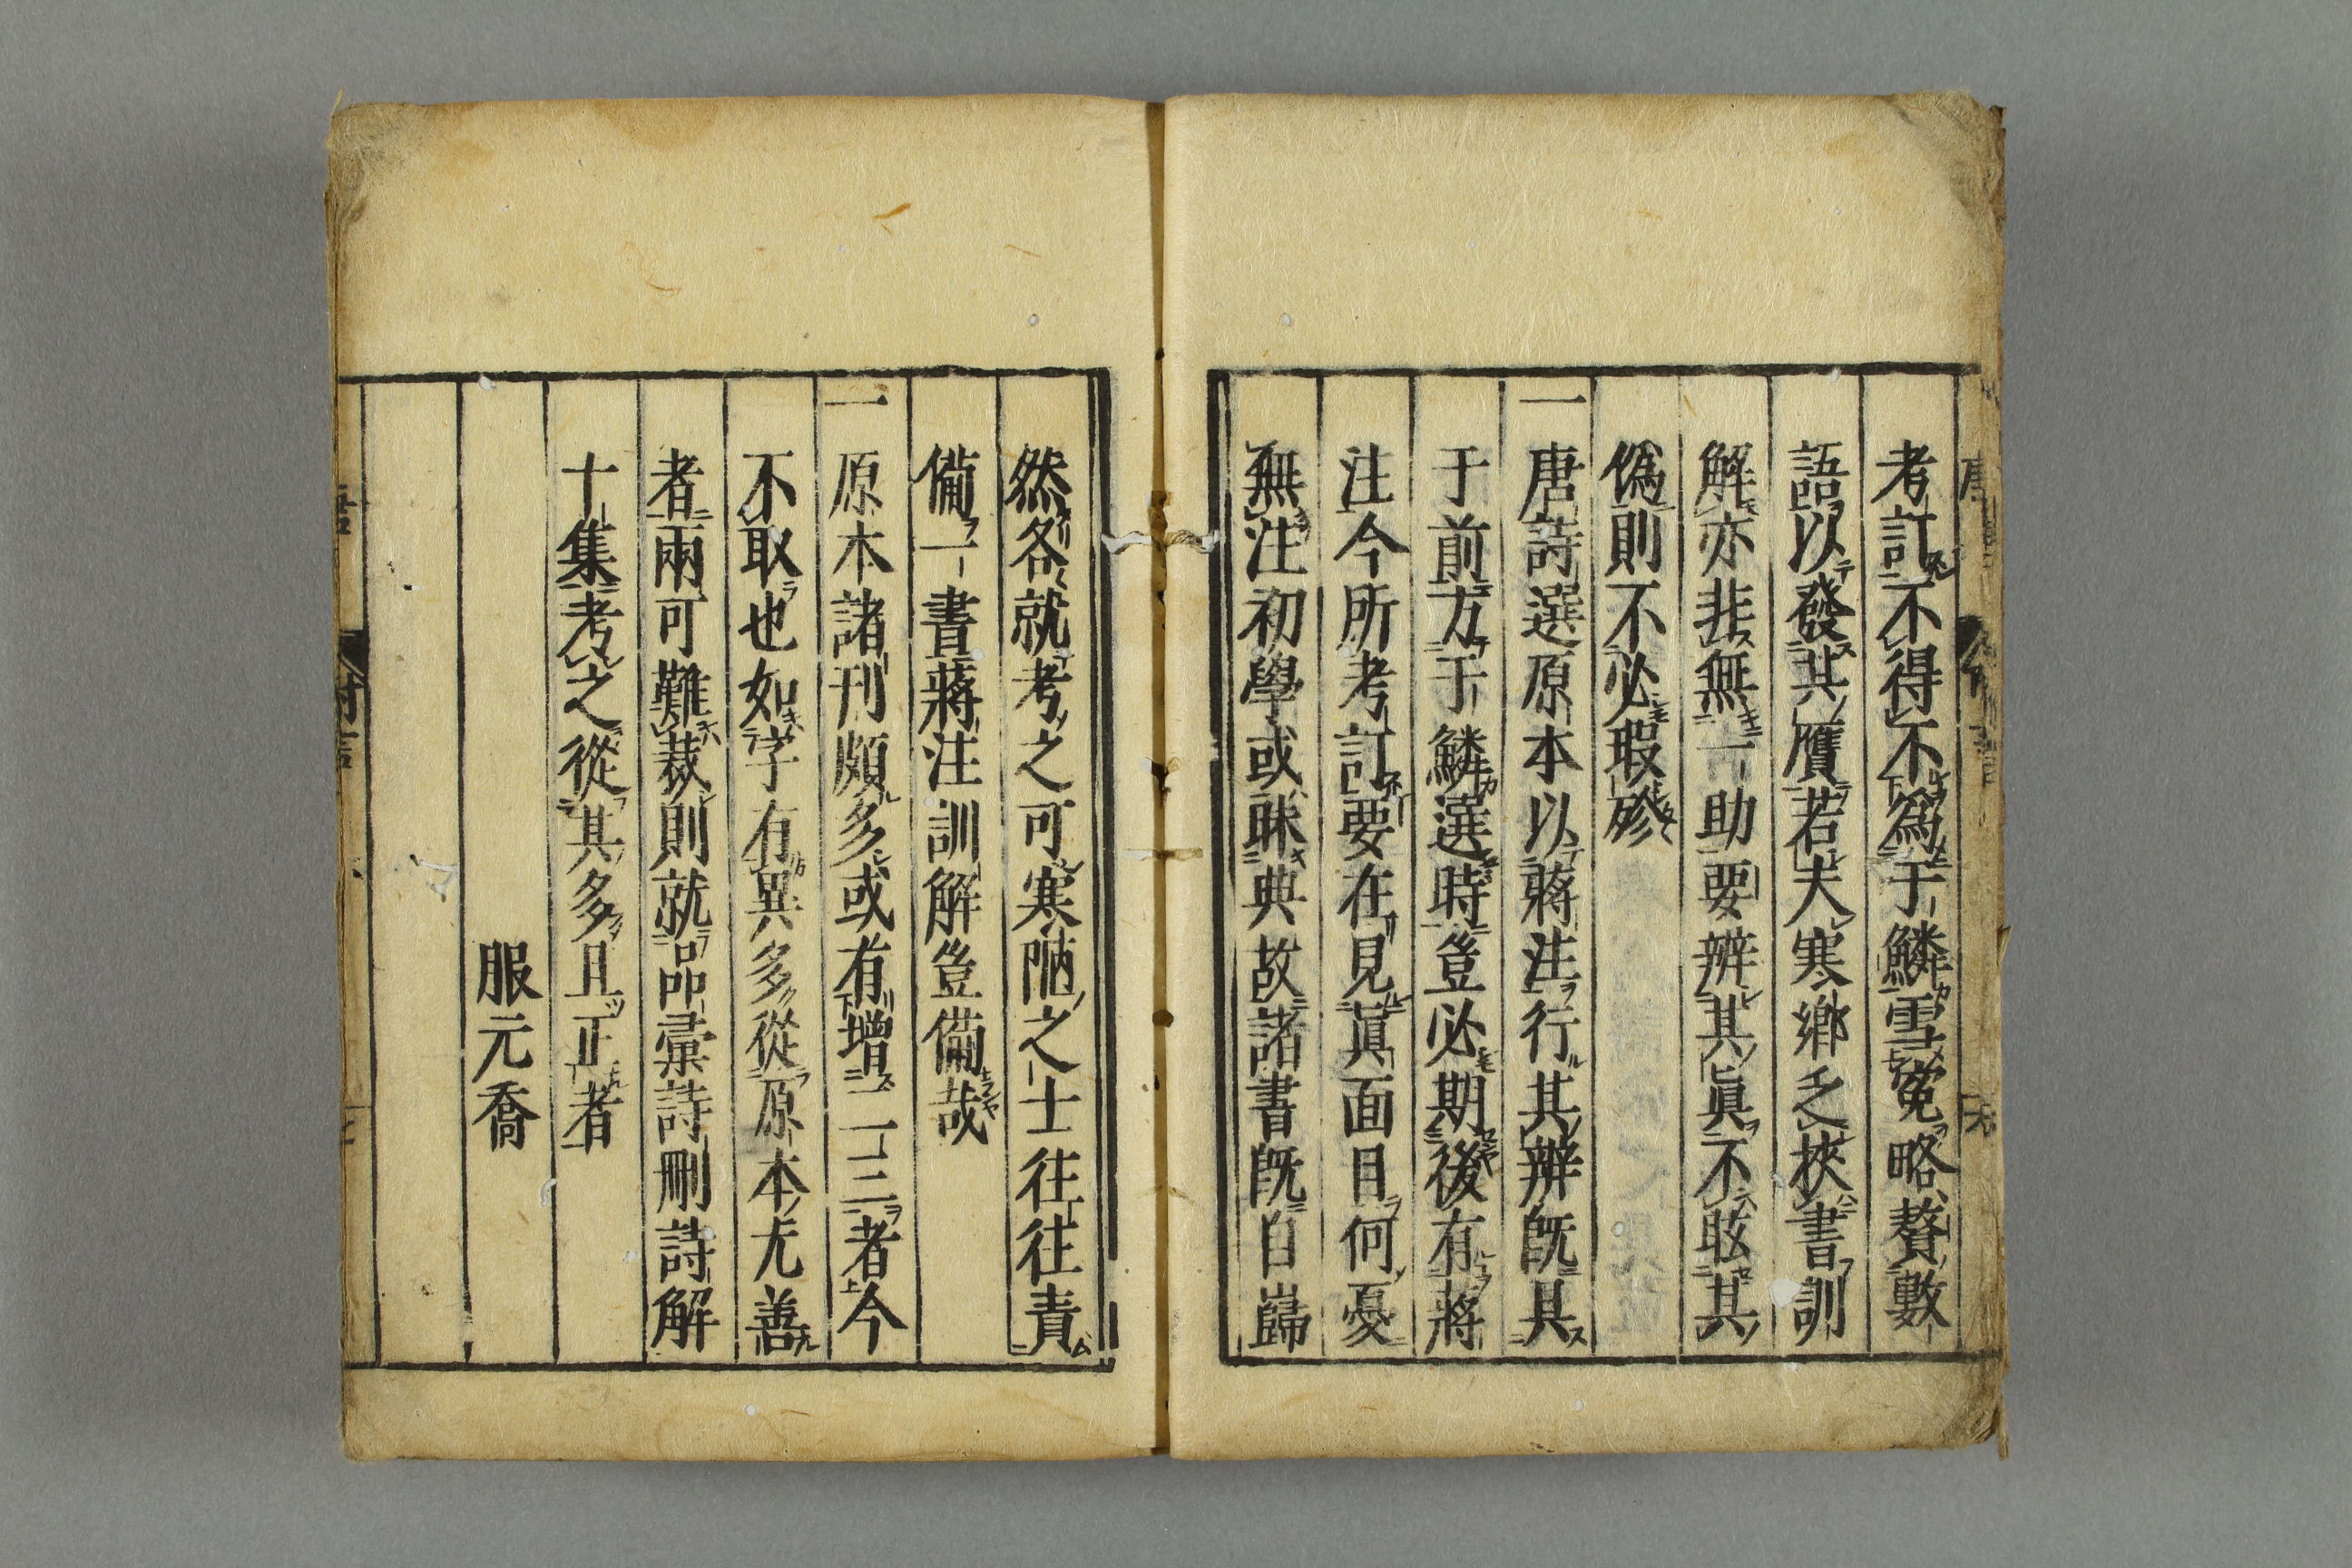 考訂不得不爲于鱗雪冤略贅數
語以發其贋若夫寒鄉乏挾書訓
解亦非無一助要辨其眞不眩其
僞則不必瑕殄
一唐詩選原本以蔣注行其辨旣具
于前方于鱗選時豈必期後有蔣
注今所考訂要在見眞面目何憂
無注初學或昧典故諸書旣自歸
然各就考之可寒陋之士往往責
備一書蔣注訓解豈備哉
一原本諸刊頗多或有增二三者今
不取也如字有異多從原本尤善
者兩可難裁則就品彙詩刪詩解
十集考之從其多且正者
服元喬